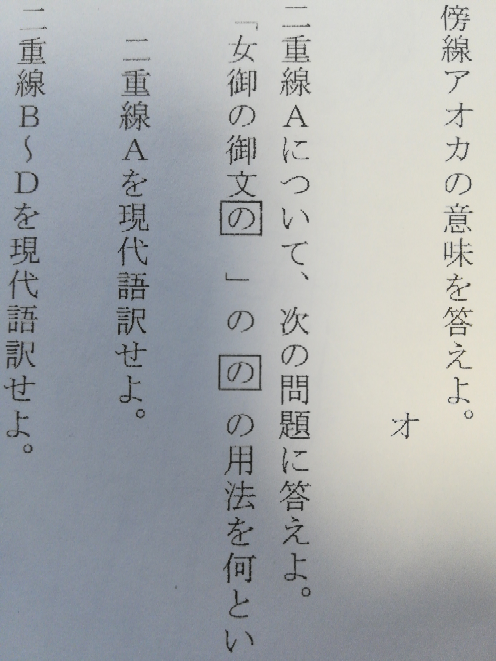 傍線アオカの意味を答えよ。
オ
二重線Aについて、次の問題に答えよ。
「女御の御文の」のの の用法を何とい
二重線Aを現代語訳せよ。
二重線B〜Dを現代語訳せよ。